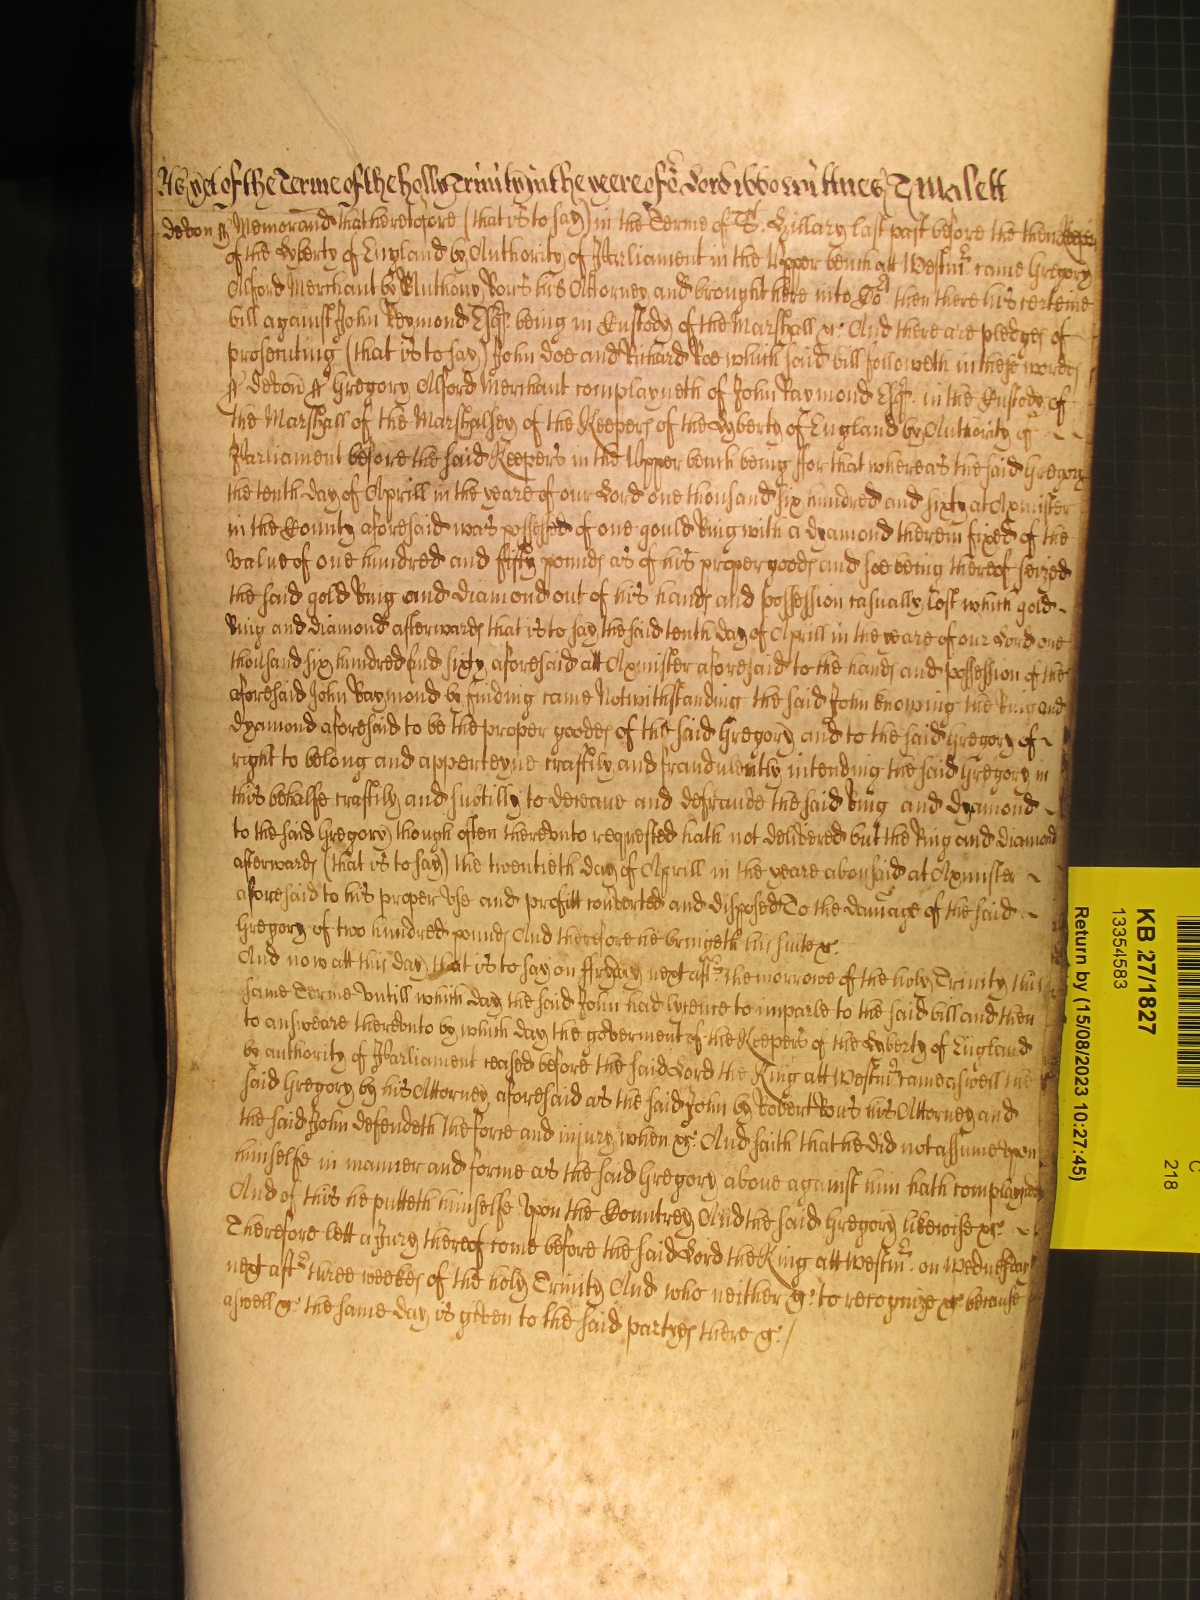 As yet of the Terme of the holly Trinity in the yeere of or Lord 1660 wittnes T Malett
Devon ss Memorand that heretofore (that is to say) in the Terme of St. Hillary last past before the then keeps
of the Lyberty of England by Authority of Parliament in the Upper bench att Westmr. came Gregory
Alford Merchant by Anthony Rous his Attorney and brought here into Cort then there his certeine
bill against John Reymond Esqr. being in Custody of the Marshall &c. And there are pledges of
prosecuting (that is to say) John Doe and Richard Roe which said bill followeth in these wordes
ss Devon ss Gregory Allford Merchant complayneth of John Raymond Esqr. in the Custody of
the Marshall of the Marshallsey of the Keepers of the Lyberty of England by Authority of
Parliament before the said Keepers in the Upper bench being ffor that whereas the said Gregory
the tenth day of Aprill in the yeare of our Lord one thousand six hundred and sixty at Axmister
in the County aforesaid was possessed of one gould Ring with a dyamond therein fixed of the
value of one hundred and fifty poundes as of his proper goodes and soe being thereof seized
the said gold Ring and diamond out of his handes and possession casually lost which gold
Ring and diamond afterwardes that is to say the said tenth day of Aprill in the yeare of our Lord one
thousand six hundred and sixty aforesaid att Axmister aforesaid to the handes and possession of the
aforesaid John Raymond by finding came Notwithstanding the said John knowing the Ring and
dyamond aforesaid to be the proper goodes of the said Gregory and to the said Gregory of
right to belong and apperteyne craftily and fraudulently intending the said Gregory in
this behalfe craftily and suptilly to deceave and defraude the said Ring and dyamond
to the said Gregory though often therevnto requested hath not delivered but the Ring and diamond
afterwardes (that is to say) the twentieth day of Aprill in the yeare abovesaid at Axmister
aforesaid to his proper vse and profitt converted and disposed To the damage of the said
Gregory of two hundred poundes And therefore he bringeth his suite &c.
And now att this day that is to say on ffryday next aftr the morrowe of the holy Trinity this
same Terme vntill which day the said John had lycence to imparle to the said bill and then
to answeare therevnto by which day the goverment of the Keepers of the Lyberty of England
by authority of Parliament ceased before the said Lord the King att Westmr came aswell the
said Gregory by his Attorney aforesaid as the said John by Robert Rous his Attorney and
the said John defendeth the force and injury when &c. And saith that he did not assume vpon
himselfe in manner and forme as the said Gregory above against him hath complayned
And of this he putteth himselfe Vpon the Countrey And the said Gregory likewise &c.
Therefore lett a Jury thereof come before the said Lord the King att Westmr. on Wednesday
next aftr three weekes of the holy Trinity And who neither &c. to recognize &c. because
aswell &c. the same day is given to the said partyes there &c./
KB 27/1827
13354583
Return by (15/08/2023 10:27:45)
218